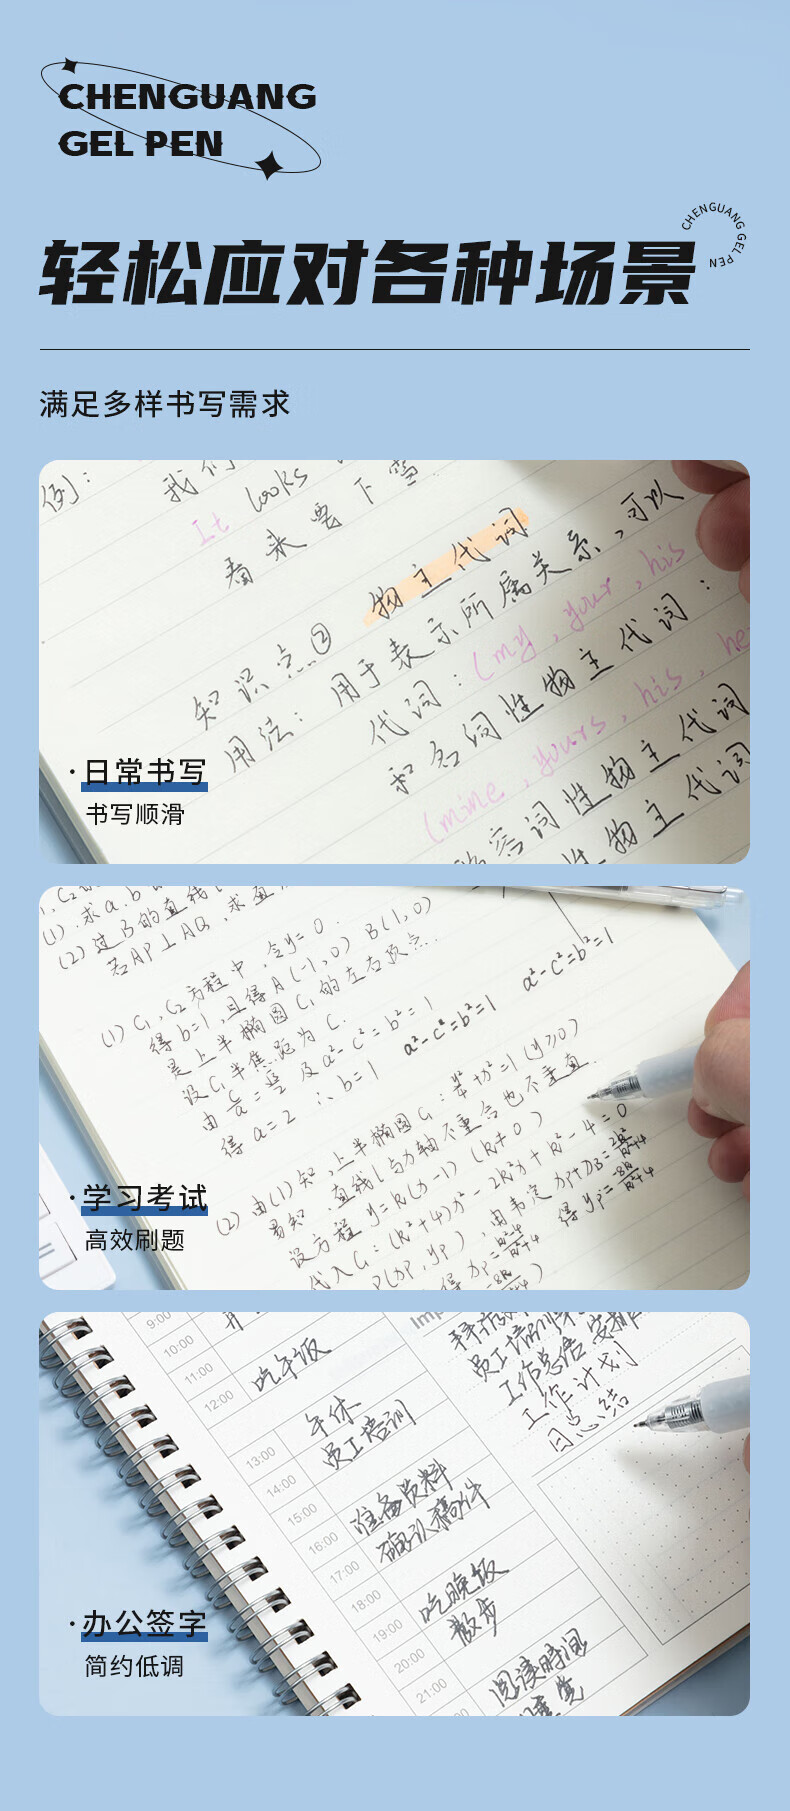 CHENGUANG
GEL PEN
CHENGUANG GEL PEN
轻松应对各种场景
满足多样书写需求
例： 我们
It looks
看来要下雪
知识点② 物主代词
用法：用于表示所属关系，可以
代词：(my, your, his
和名词性物主代词：
(mine, yours, his, he
容词性物主代词
性物主代词
·日常书写
书写顺滑
(1).求a.b
(2)过B的直线
若AP⊥AQ,求直
(1) C₁,C₂方程中,令y=0.
得b=1,且得A(-1,0) B(1,0)
是上半椭圆C₁的左右顶点.
设C₁半焦距为C.
由 及a²-c²=b²=1
得a=2 ∴b=1
a²-c²=b²=1
a²-c²=b²=1
(2)由(1)知,上半椭圆C₁: +x²=1(y≥0)
易知,直线l与x轴不重合也不垂直.
设方程y=k(x-1)(k≠0)
代入C₁:(k²+4)x²-2k²x+k²-4=0
P(xp,yp),由韦定xp+xB=2k²/k²+4
得xp=k²-4/k²+4
得yp=-8k/k²+4
·学习考试
高效刷题
9:00
10:00
11:00
12:00
吃午饭
13:00
午休
员工培训
14:00
15:00
16:00
准备资料
确认稿件
17:00
18:00
19:00
吃晚饭
散步
20:00
21:00
阅读时间
Imp
员工培训
工作总结 安排
工作计划
日总结
·办公签字
简约低调